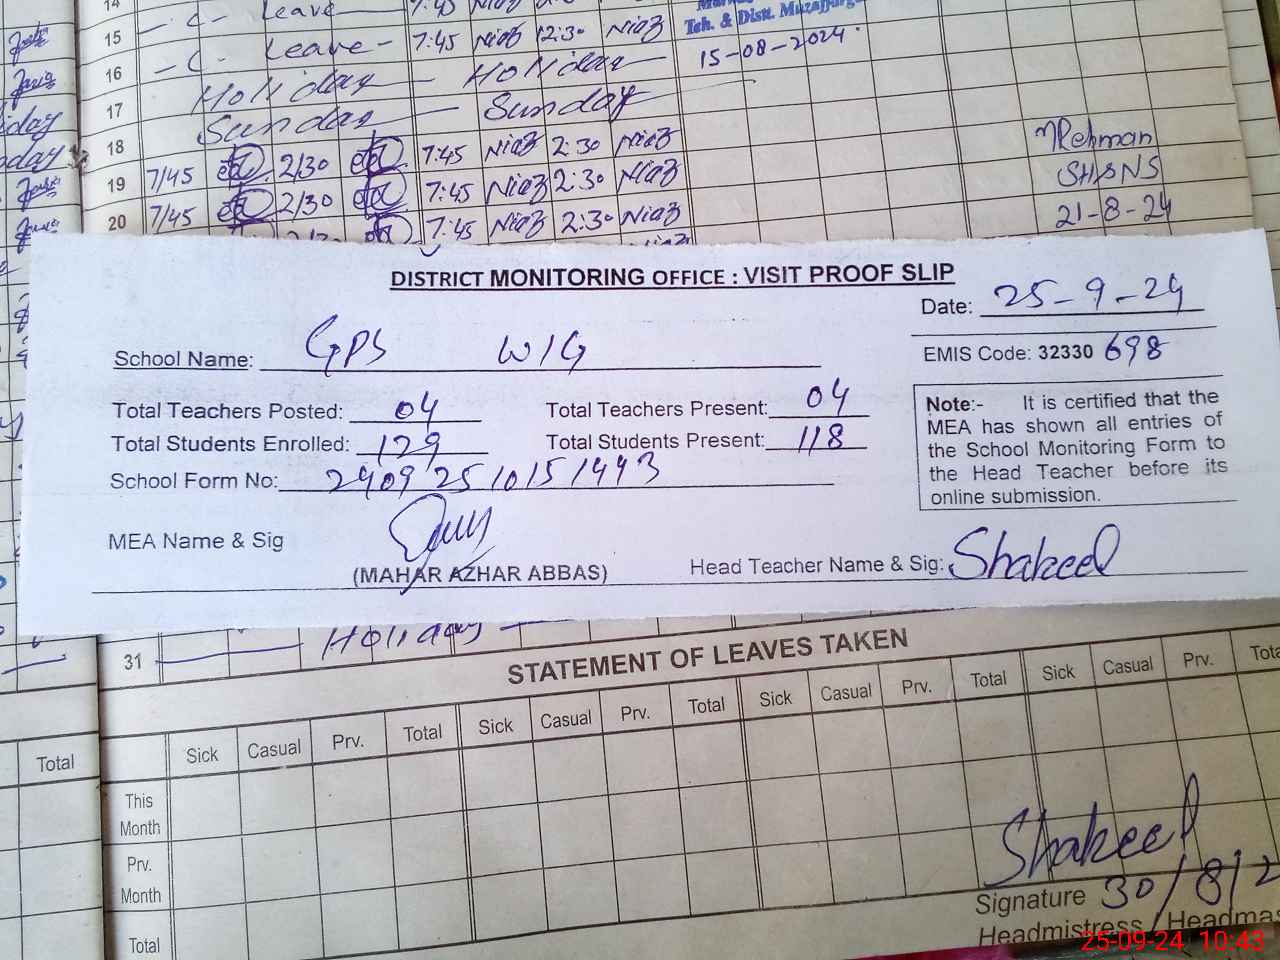 14 - C - Leave - 7:45 Niaz Niaz
15 - C. Leave - 7:45 Niaz 12:30 Niaz
Teh. & Distt. Muzaffargarh
15-08-2024.
16 Holiday - Holiday
17 Sunday - Sunday
18 7/45 2/30 7:45 Niaz 2:30 Niaz
19 7/45 2/30 7:45 Niaz 2:30 Niaz
20 7:45 Niaz 2:30 Niaz
Rehman
21-8-24
DISTRICT MONITORING OFFICE : VISIT PROOF SLIP
Date: 25-9-24
School Name: GPS W/G
EMIS Code: 32330 698
Total Teachers Posted: 04 Total Teachers Present: 04
Total Students Enrolled: 129 Total Students Present: 118
School Form No: 24092510151443
Note:- It is certified that the
MEA has shown all entries of
the School Monitoring Form to
the Head Teacher before its
online submission.
MEA Name & Sig
(MAHAR AZHAR ABBAS)
Head Teacher Name & Sig: Shakeel
31 Holiday
STATEMENT OF LEAVES TAKEN
Total Sick Casual Prv. Total Sick Casual Prv. Total Sick Casual Prv. Total Sick Casual Prv. Total
This
Month
Prv.
Month
Total
Shakeel
Signature 30/8/2
Headmistress / Headmas
25-09-24 10:43